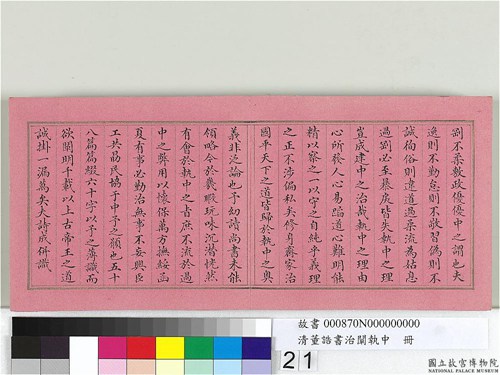 剛不柔敷政優優中之謂也夫
逸則不勤怠則不敬習偽則不
誠徇俗則違道過柔流為姑息
過剛必至暴戾皆失執中之理
豈成建中之治哉執中之理由
心所發人心易縱道心難明能
精以察之一以守之自純乎義理
之正不涉偏私矣修身齊家治
國平天下之道皆歸於執中之奧
義非泛論也予幼讀尚書未能
領略今於幾暇玩味沉潛恍然
有會於執中之旨庶不流於過
中之弊用以懷保萬方撫綏函
夏有事必勤治無事不妄興臣
工共勗民協于中予之願也五十
八篇篇綴六十字以予之薄識而
欲闡明千載以上古帝王之道
誠掛一漏萬矣夫詩成併識
故書 000870N000000000
清董誥書治闡執中 冊
21
國立故宮博物院
NATIONAL PALACE MUSEUM